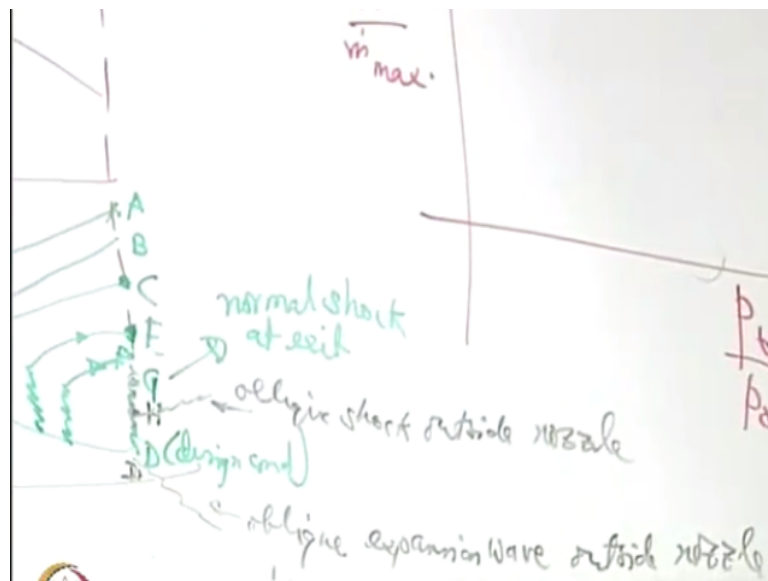 ṁ
max.
A
B
C
normal shock
at exit
F
G
H
oblique shock outside nozzle
D (design cond)
oblique expansion wave outside nozzle
p
p